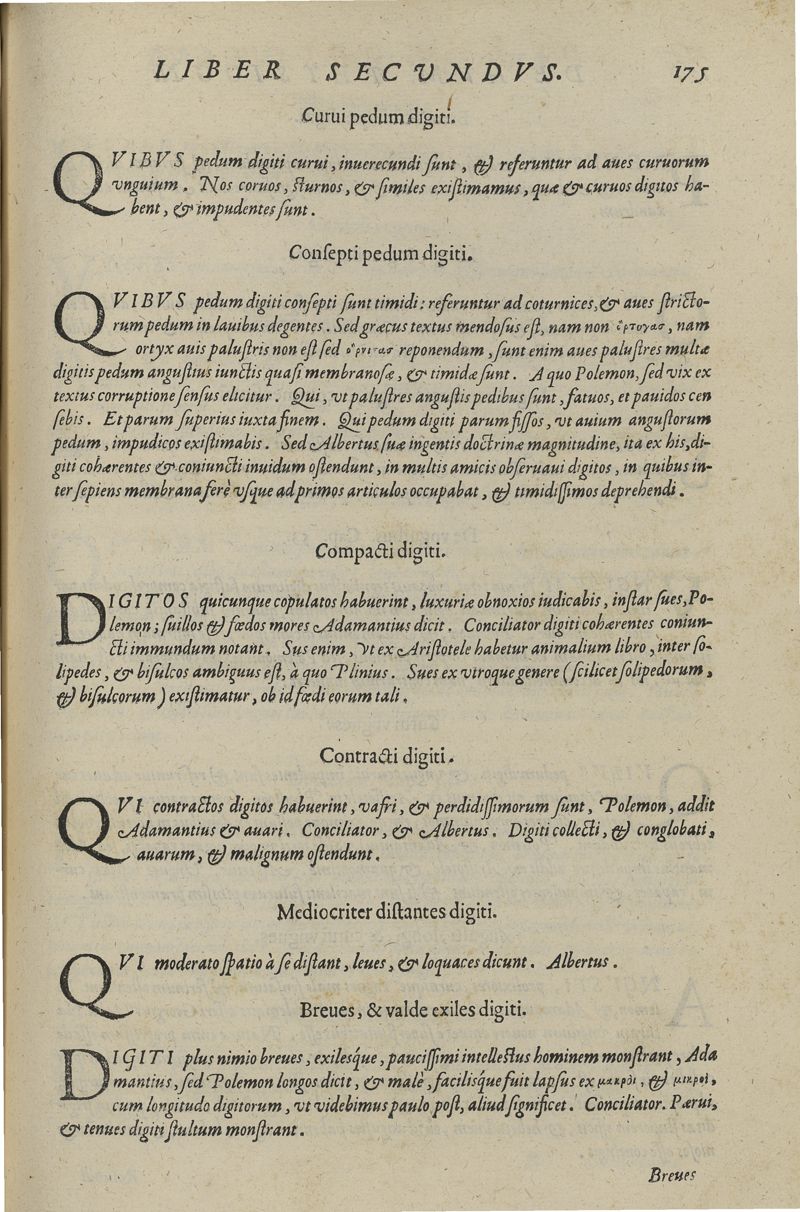 LIBER SECVNDVS. 175
Curui pedum digiti.
QVIBVS pedum digiti curui, inuerecundi ſunt, & referuntur ad aues curuorum
vnguium. Nos coruos, ſturnos, & ſimiles exiſtimamus, quæ & curuos digitos ha-
bent, & impudentes ſunt.
Conſepti pedum digiti.
QVIBVS pedum digiti conſepti ſunt timidi: referuntur ad coturnices, & aues ſtricto-
rum pedum in lauibus degentes. Sed græcus textus mendoſus eſt, nam non ὄρτυγασ, nam
ortyx auis paluſtris non eſt ſed ὄρνιτασ reponendum, ſunt enim aues paluſtres multæ
digitis pedum anguſtius iunctis quaſi membranoſæ, & timidæ ſunt. A quo Polemon, ſed vix ex
textus corruptione ſenſus elicitur. Qui, vt paluſtres anguſtis pedibus ſunt, fatuos, et pauidos cen
ſebis. Et parum ſuperius iuxta finem. Qui pedum digiti parum fiſſos, vt auium anguſtorum
pedum, impudicos exiſtimabis. Sed Albertus ſuæ ingentis doctrinæ magnitudine, ita ex his, di-
giti cohærentes & coniuncti inuidum oſtendunt, in multis amicis obſeruaui digitos, in quibus in-
ter ſepiens membrana ferè vſque ad primos articulos occupabat, & timidiſſimos deprehendi.
Compacti digiti.
DIGITOS quicunque copulatos habuerint, luxuriæ obnoxios iudicabis, inſtar ſues, Po-
lemon; ſuillos & fœdos mores Adamantius dicit. Conciliator digiti cohærentes coniun-
cti immundum notant. Sus enim, vt ex Ariſtotele habetur animalium libro, inter ſo-
lipedes, & biſulcos ambiguus eſt, à quo Plinius. Sues ex vtroque genere (ſcilicet ſolipedorum,
& biſulcorum) exiſtimatur, ob id fœdi eorum tali.
Contracti digiti.
QVI contractos digitos habuerint, vafri, & perdidiſſimorum ſunt, Polemon, addit
Adamantius & auari. Conciliator, & Albertus. Digiti collecti, & conglobati,
auarum, & malignum oſtendunt.
Mediocriter diſtantes digiti.
QVI moderato ſpatio à ſe diſtant, leues, & loquaces dicunt. Albertus.
Breues, & valde exiles digiti.
DIGITI plus nimio breues, exileſque, pauciſſimi intellectus hominem monſtrant, Ada
mantius, ſed Polemon longos dicit, & malè, faciliſque fuit lapſus ex μακρὸι, & μικροὶ,
cum longitudo digitorum, vt videbimus paulo poſt, aliud ſignificet. Conciliator. Pærui,
& tenues digiti ſtultum monſtrant.
Breues